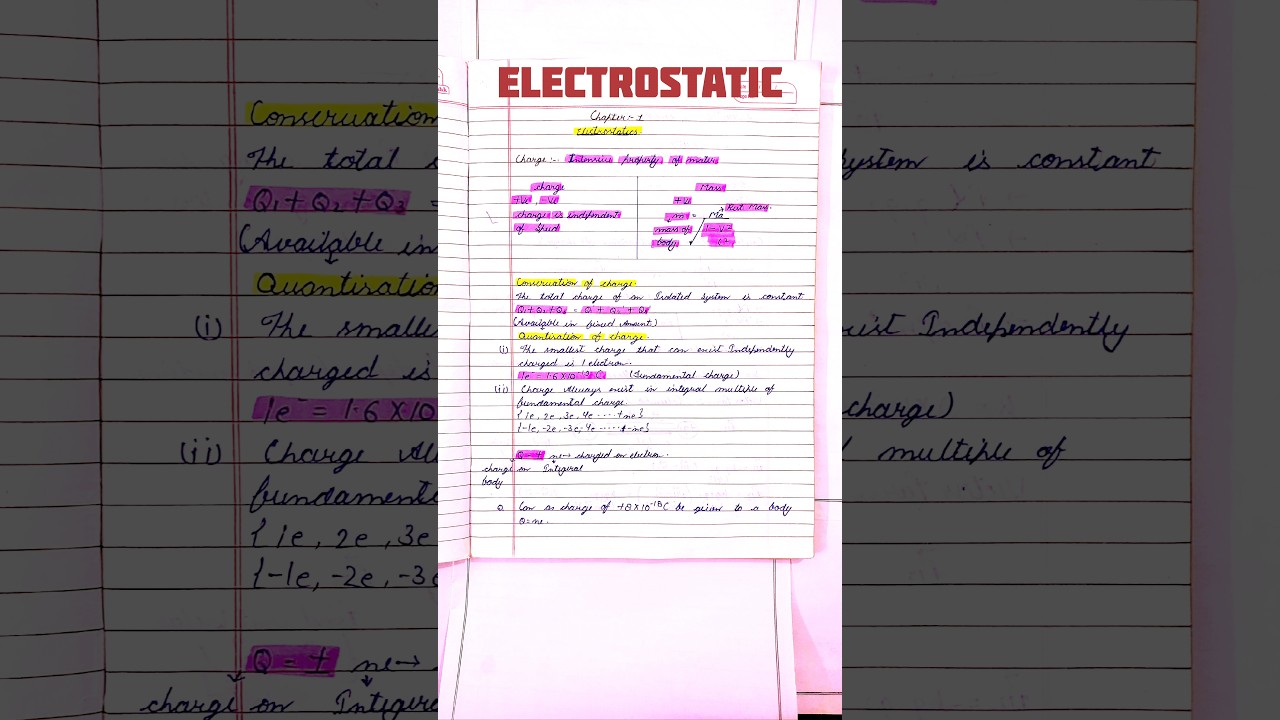 ELECTROSTATIC
Chapter:- 1
Electrostatics
Charge :- Intensive property of matter
charge
+ve, -ve
charge is independent
of speed
Mass
+ve
m =
mass of
body
Rest Mass
1 - v2
c2
Conservation of charge
The total charge of an Isolated system is constant
(Available in fixed Amount)
Quantisation of charge
(i) The smallest charge that can exist Independently
charged is 1 electron.
1e⁻ = 1.6 × 10⁻¹⁹ C. (fundamental charge)
(ii) Charge Always exist in integral multiple of
fundamental charge.
{1e, 2e, 3e, 4e .....+ne}
{-1e, -2e, -3e, 4e .....+-ne}
Q = ± ne → charged on electron.
charge on Integral
body
Q Can as charge of +8×10⁻¹⁸C be given to a body
Q=ne.
Conservation
The total
Q1 + Q2 + Q3 =
(Available in
Quantisation
(i) The smalle
charged is
1e⁻ = 1.6 × 10
(ii) Charge Al
fundamente
{1e, 2e, 3e
{-1e, -2e, -3
Q = ± ne→
charge on Integra
system is constant
exist Independently
charge)
multiple of